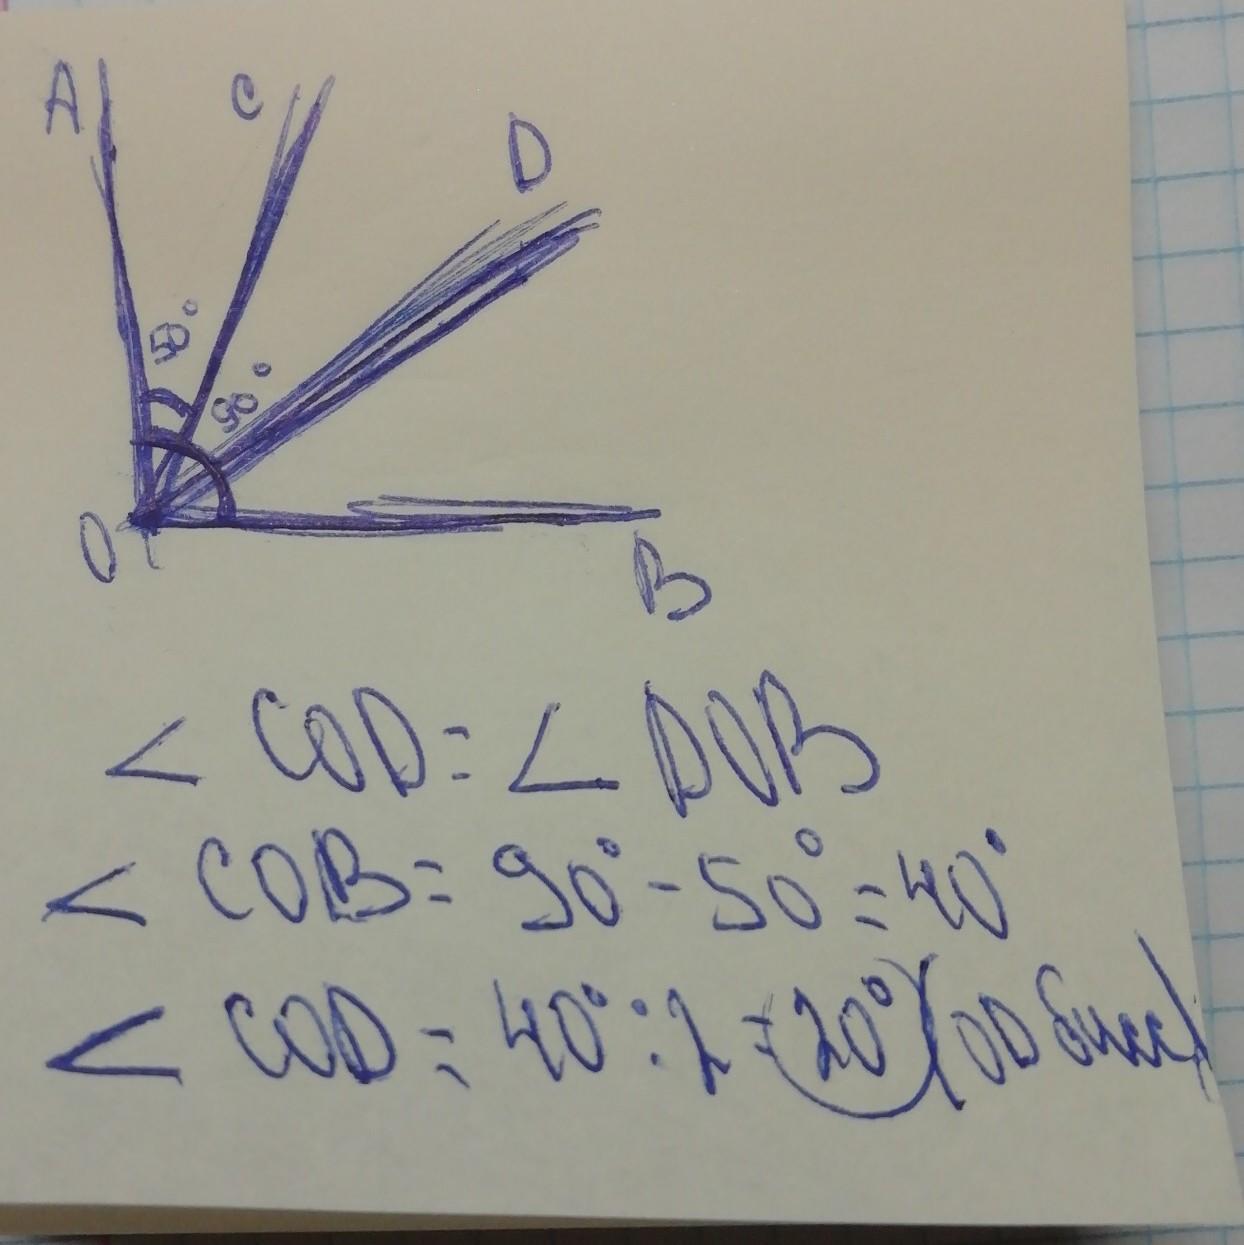 A C D
50°
90°
O B
< COD = ∠ DOB
< COB = 90° - 50° = 40°
< COD = 40° : 2 = 20° (OD бисс)